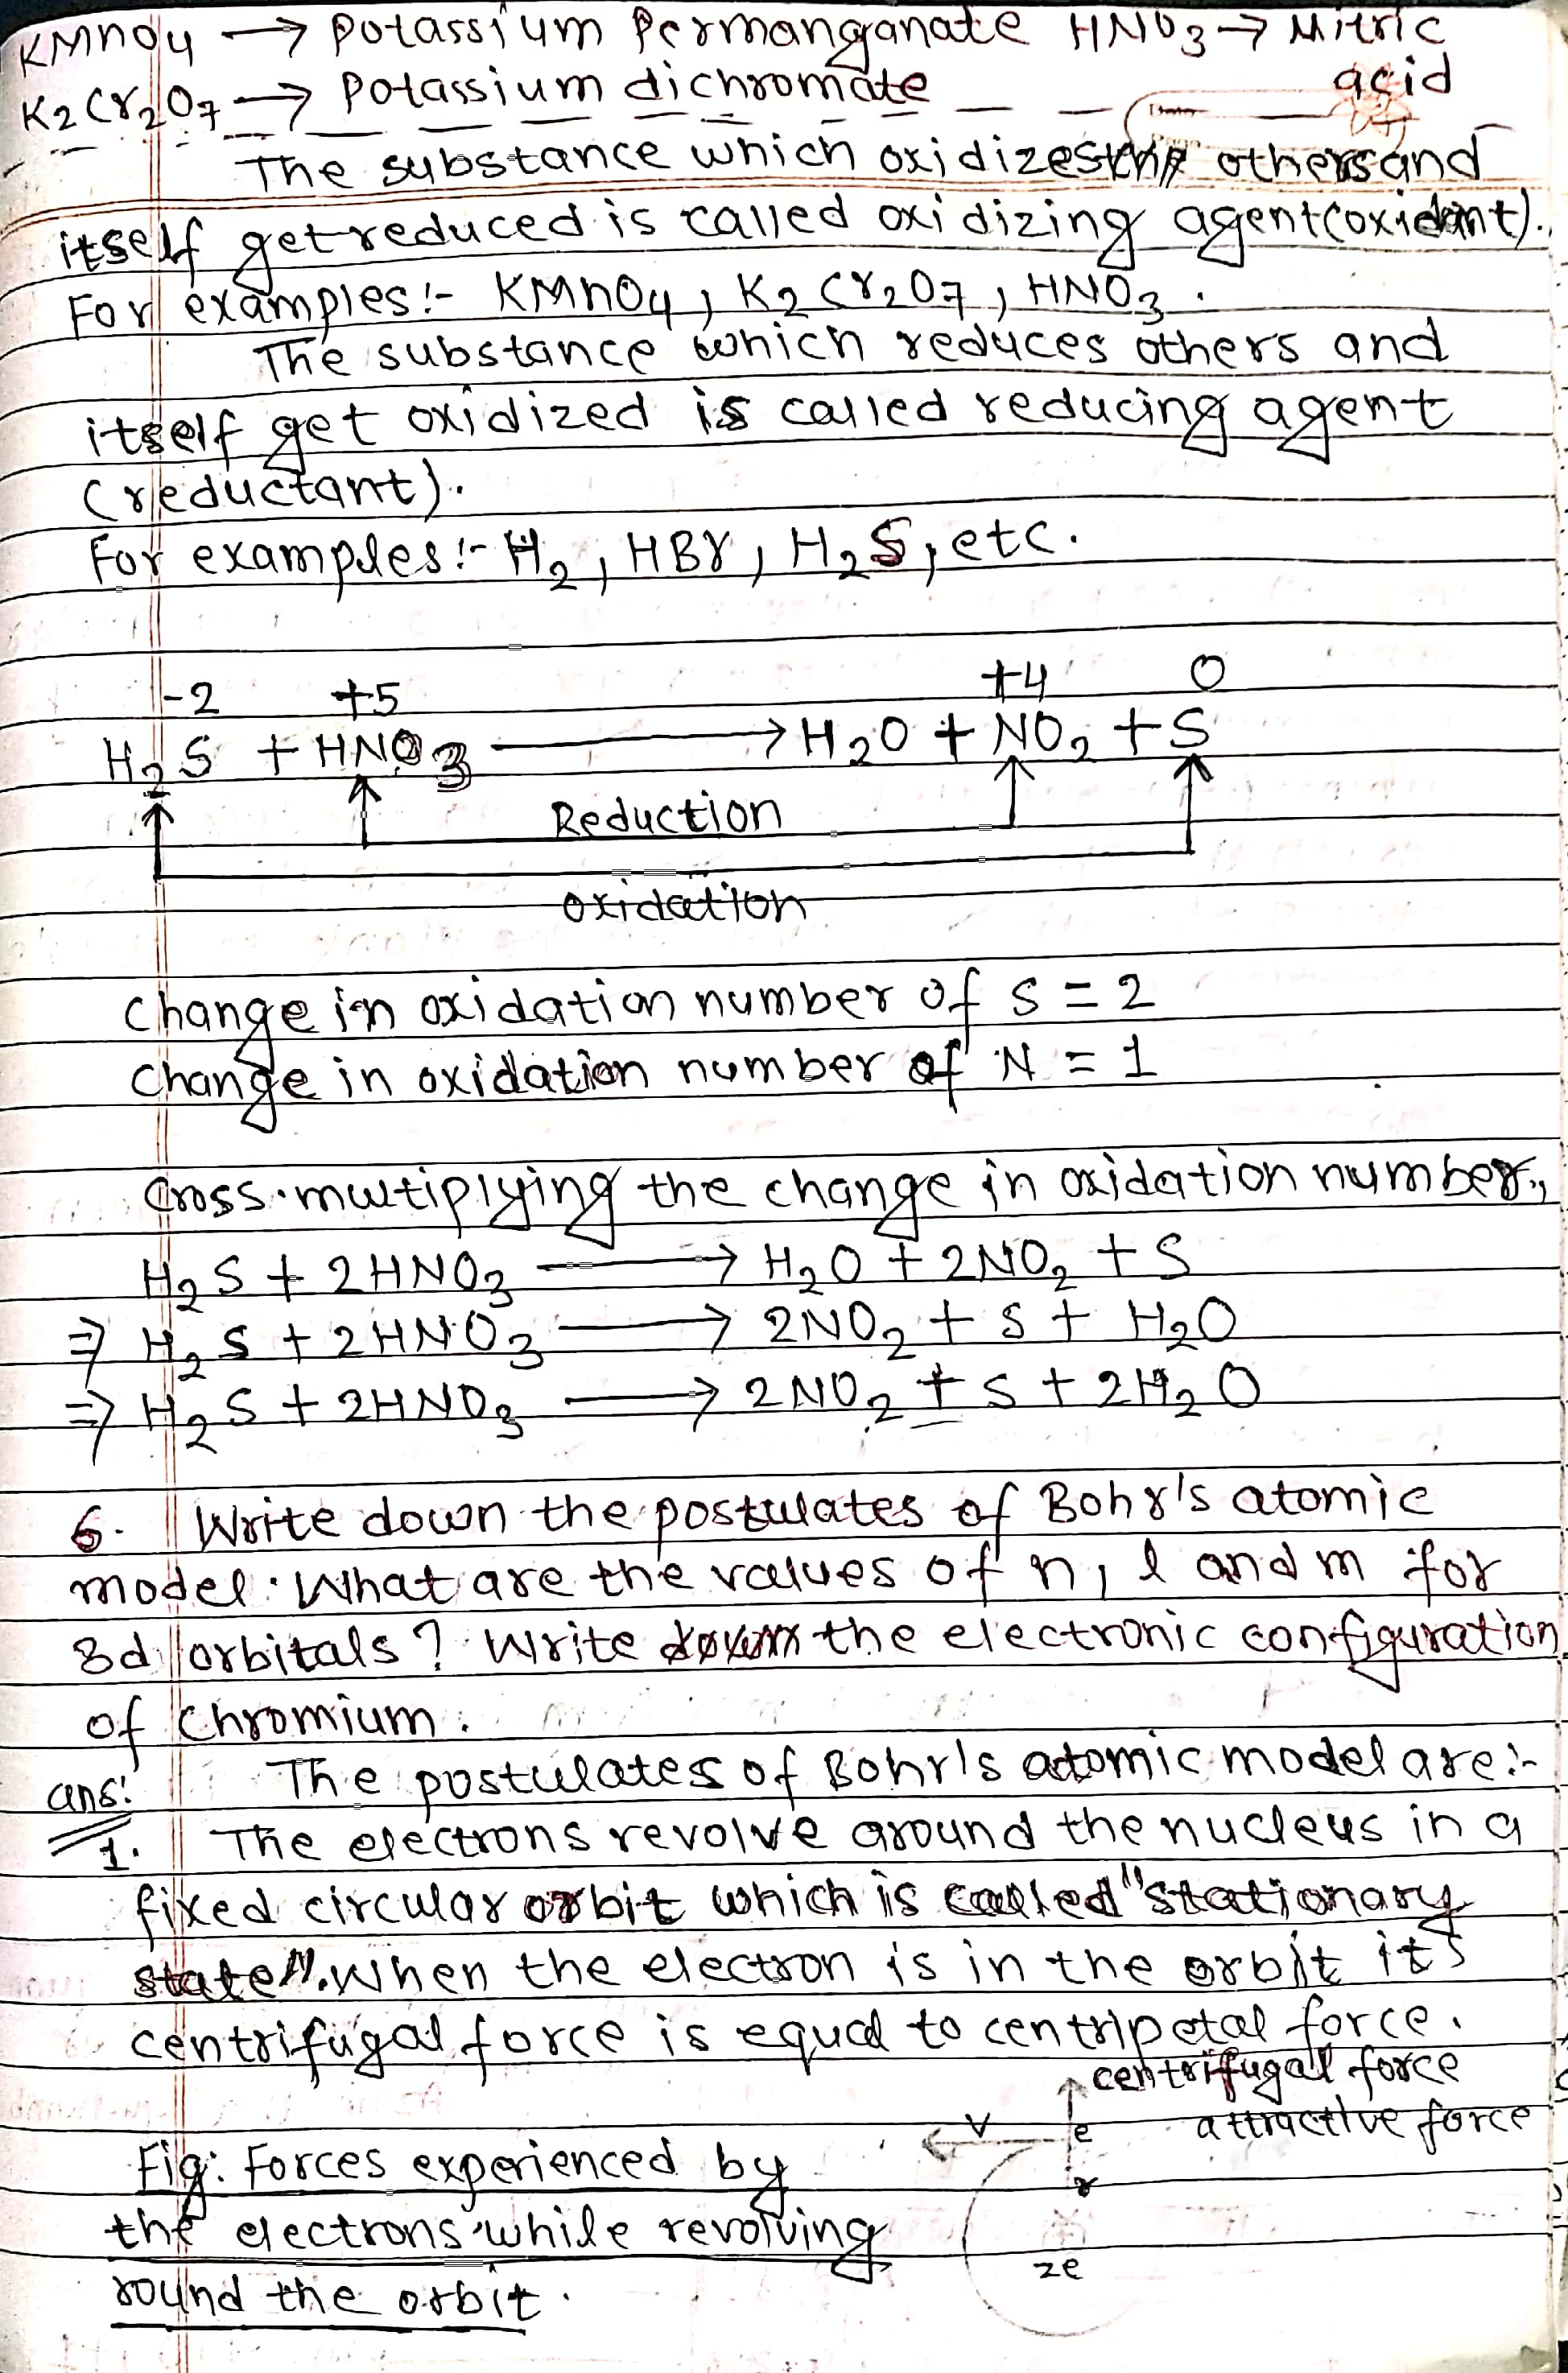 KMnO4 → Potassium Permanganate HNO3 → Nitric acid
K2Cr2O7 → Potassium dichromate
The substance which oxidizes others and
itself get reduced is called oxidizing agent (oxidant).
For examples:- KMnO4, K2Cr2O7, HNO3.
The substance which reduces others and
itself get oxidized is called reducing agent
(reductant).
For examples:- H2, HBr, H2S, etc.
-2 +5 +4 0
H2S + HNO3 → H2O + NO2 + S
Reduction
oxidation
Change in oxidation number of S = 2
Change in oxidation number of N = 1
Cross-multiplying the change in oxidation number,
H2S + 2HNO3 → H2O + 2NO2 + S
⇒ H2S + 2HNO3 → 2NO2 + S + H2O
⇒ H2S + 2HNO3 → 2NO2 + S + 2H2O
6. Write down the postulates of Bohr's atomic
model. What are the values of n, l and m for
3d orbitals? Write the electronic configuration
of chromium.
ans: The postulates of Bohr's atomic model are:-
1. The electrons revolve around the nucleus in a
fixed circular orbit which is called "stationary
state". When the electron is in the orbit its
centrifugal force is equal to centripetal force.
centrifugal force
v e attractive force
Fig: Forces experienced by
r
the electrons while revolving
ze
round the orbit.